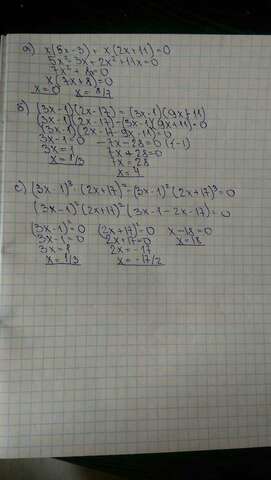 a) x(5x-3)+x(2x+11)=0
5x²-3x+2x²+11x=0
7x²+8x=0
x(7x+8)=0
x=0 x=8/7
b) (3x-1)(2x-17)=(3x-1)(9x+11)
(3x-1)(2x-17)-(3x-1)(9x+11)=0
(3x-1)(2x-17-9x-11)=0
3x-1=0 -7x-28=0 (-1)
3x=1 7x+28=0
x=1/3 7x=28
x=4
c) (3x-1)³·(2x+17)²-(3x-1)²(2x+17)³=0
(3x-1)²(2x+17)²(3x-1-2x-17)=0
(3x-1)²=0 (2x+17)²=0 x-18=0
3x-1=0 2x+17=0 x=18
3x=1 2x=-17
x=1/3 x=-17/2